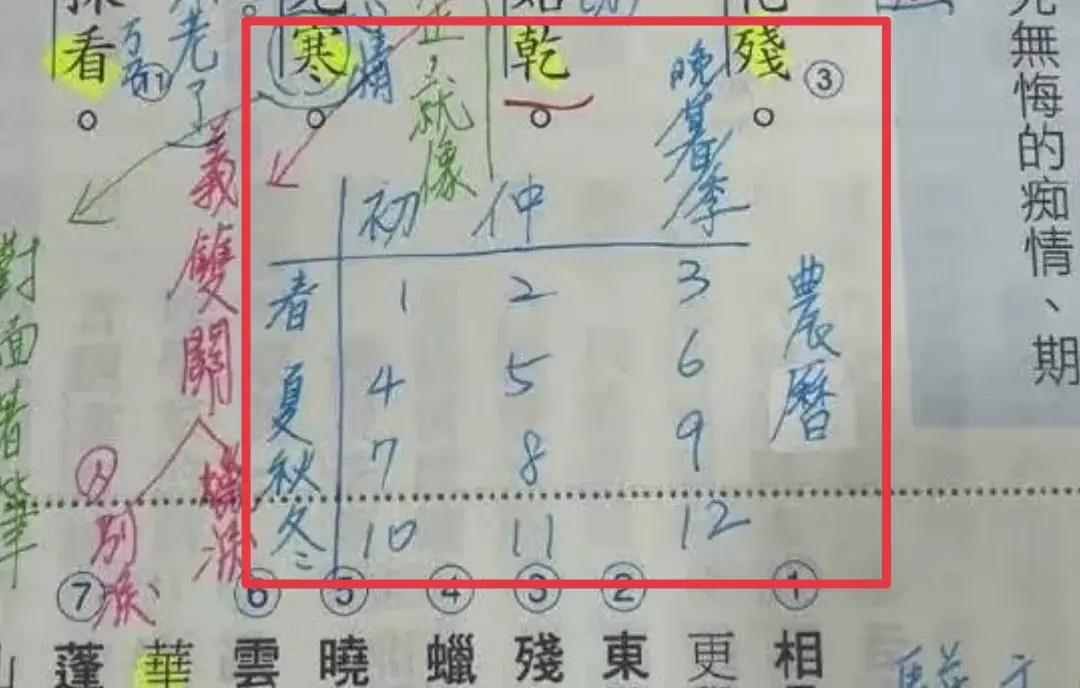 無悔的痴情、期
殘。
③
乾。
寒。
看。
就像
老了
晚暮季
農曆
初 仲
春 1 2 3
夏 4 5 6
秋 7 8 9
冬 10 11 12
義雙關
蠟淚
人
別淚
對面著筆
①
相
更
②
東
③
殘
④
蠟
⑤
曉
⑥
雲
華
⑦
蓬